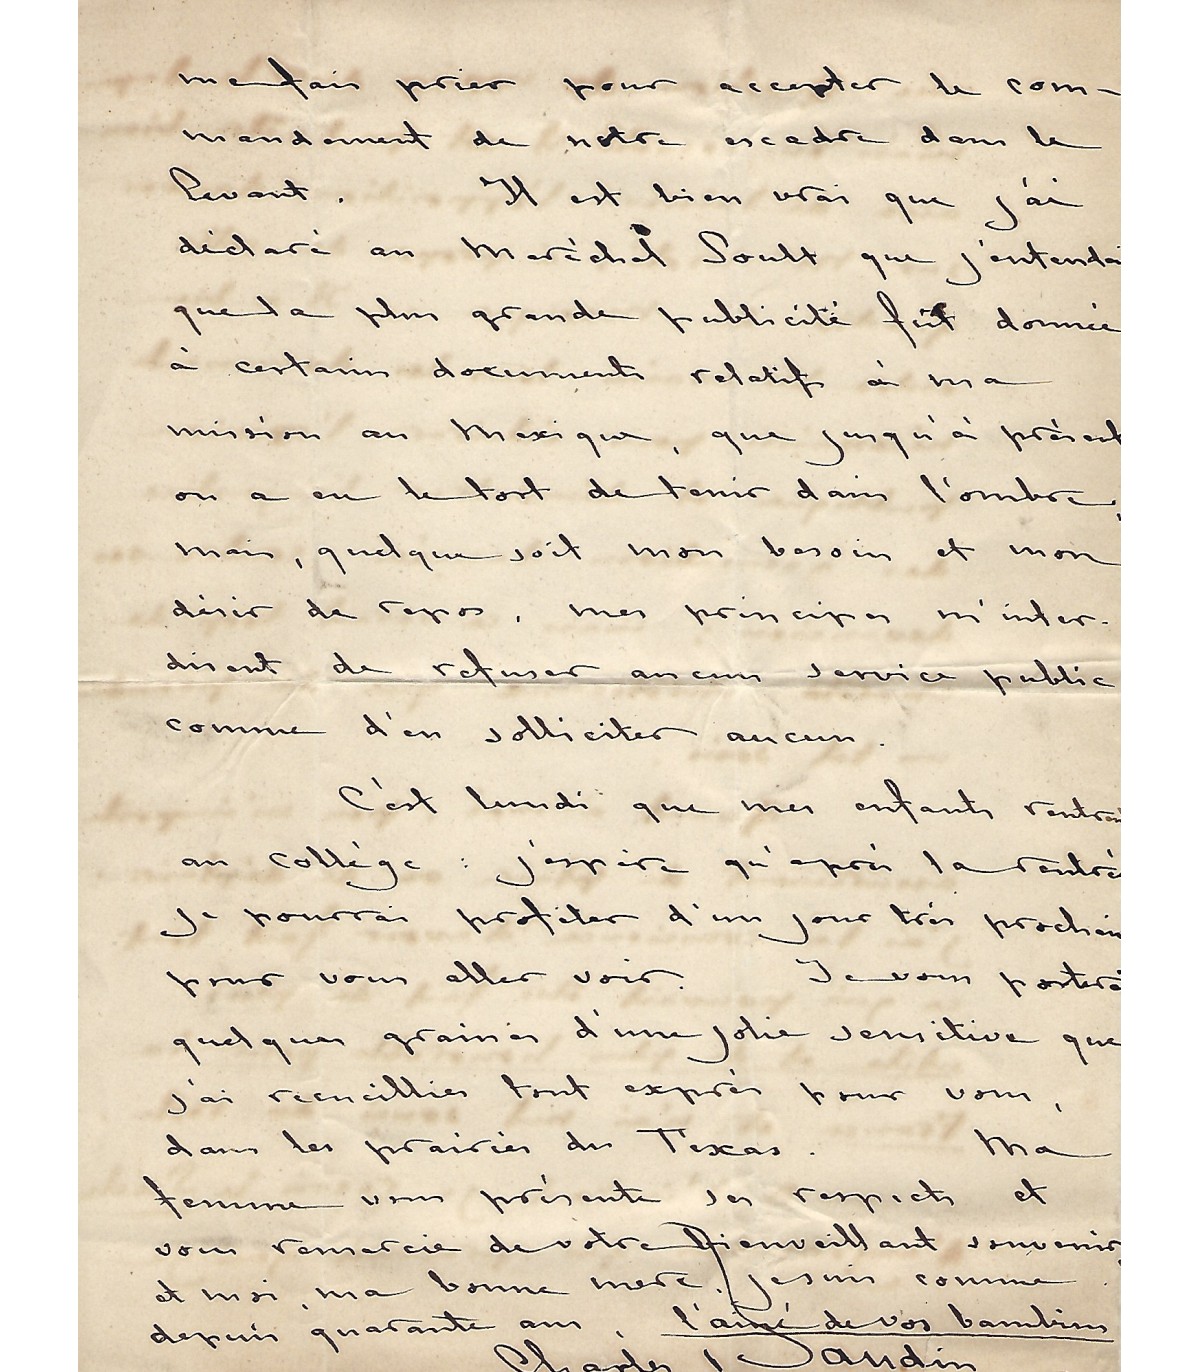 me fais prier pour accepter le com-
mandement de notre escadre dans le
Levant. Il est bien vrai que j'ai
déclaré au Maréchal Soult que j'entendai
que la plus grande publicité fut donnée
à certains documents relatifs à ma
mission au Mexique, que jusqu'à présent
on a eu le tort de tenir dans l'ombre,
mais, quelque soit mon besoin et mon
désir de repos, mes principes m'inter-
disent de refuser aucun service public
comme d'en solliciter aucun.
C'est lundi que mes enfants rentren
au collège : j'espère qu'après la rentré
je pourrai profiter d'un jour très prochain
pour vous aller voir. Je vous porterai
quelques graines d'une jolie sensitive que
j'ai recueillies tout exprès pour vous,
dans les prairies du Texas. Ma
femme vous présente ses respects et
vous remercie de votre bienveillant souvenir,
et moi, ma bonne mère, je suis comme
depuis quarante ans, l'ainé de vos bambins
Charles Baudin